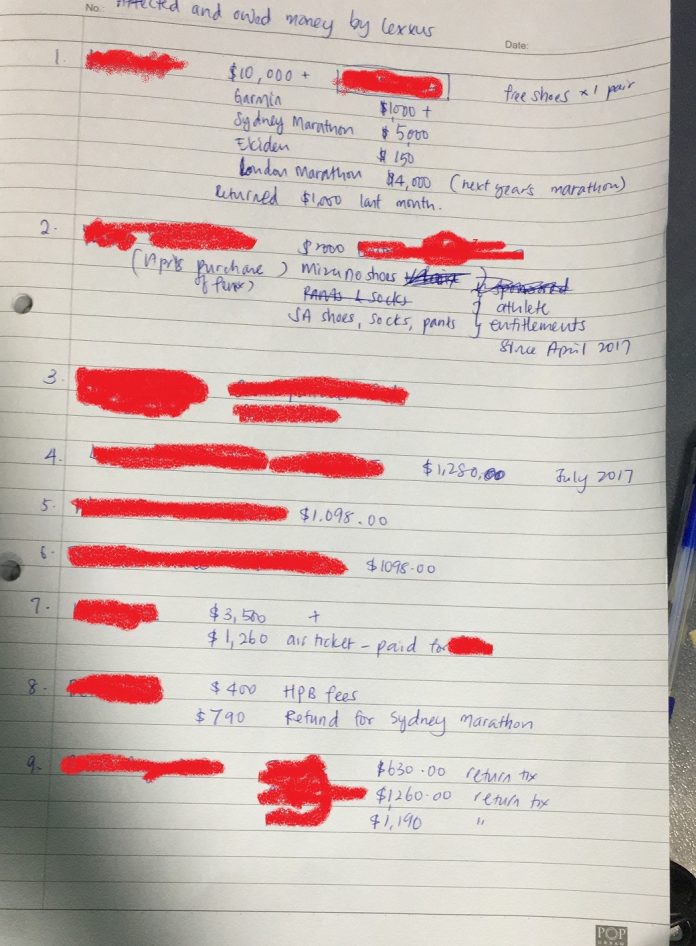 No.: Affected and owed money by Lexxus
Date:
1.
$10,000 +
free shoes x 1 pair
Garmin $1000 +
Sydney Marathon $5,000
Ekiden $150
London Marathon $4,000 (next year's marathon)
Returned $1,000 last month.
2. $2000
(April's purchase of Mizuno shoes
Pants & socks
SA shoes, socks, pants
sponsored
athlete
entitlements
Since April 2017
3.
4. $1,280.00 July 2017
5. $1,098.00
6. $1098.00
7. $3,500 +
$1,260 air ticket - paid for
8. $400 HPB fees
$790 Refund for Sydney Marathon
9. $630.00 return tix
$1260.00 return tix
$1,190 "
POP